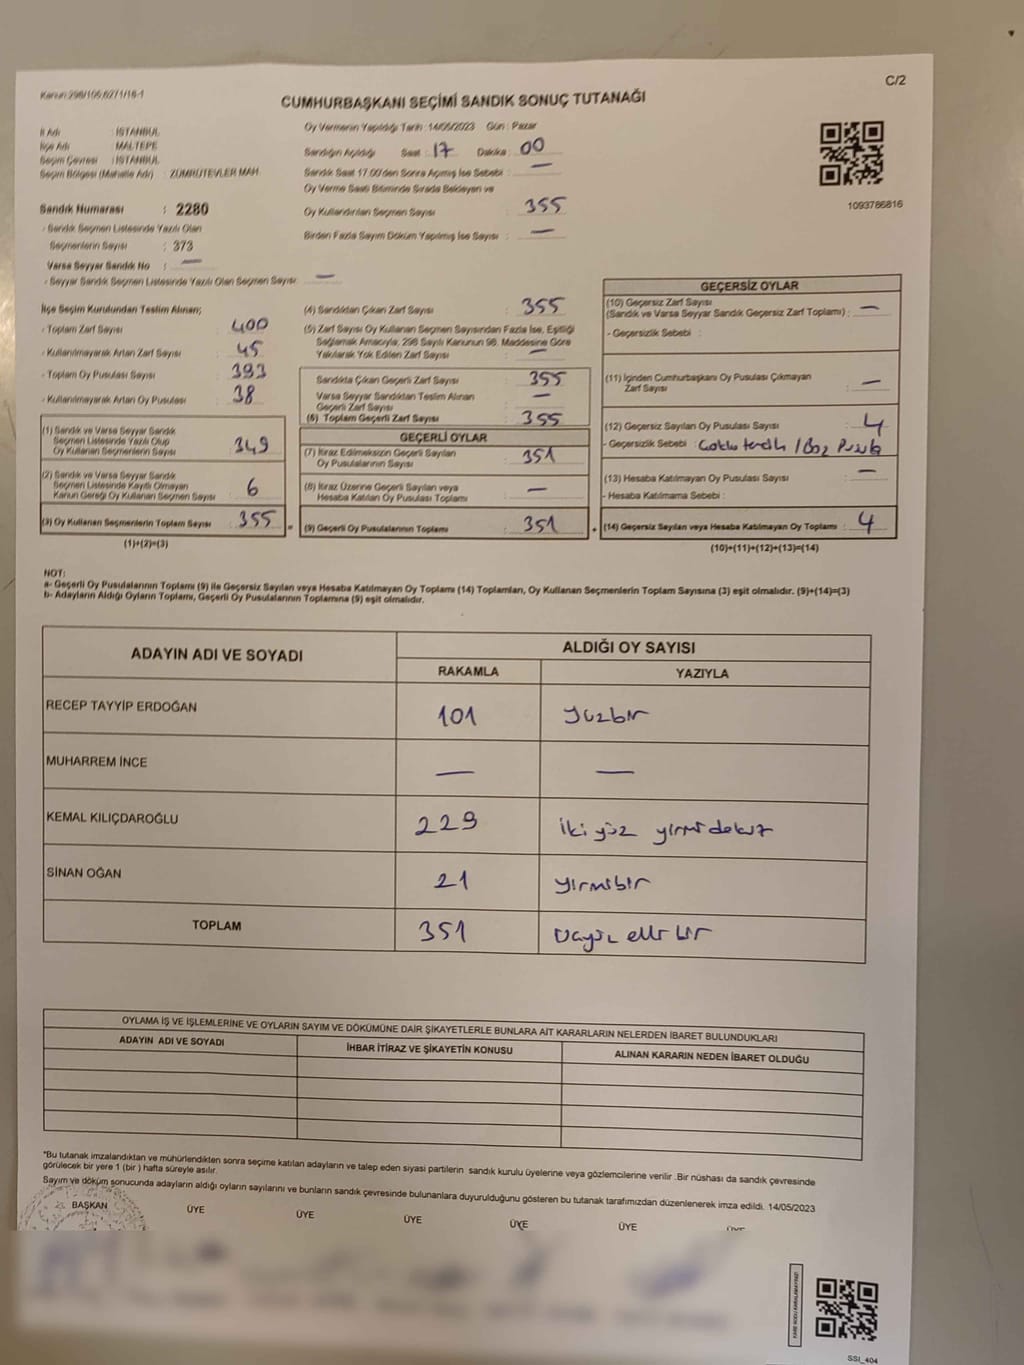 C/2
Kanun:298/105,6271/16-1
CUMHURBAŞKANI SEÇİMİ SANDIK SONUÇ TUTANAĞI
İl Adı : İSTANBUL
İlçe Adı : MALTEPE
Seçim Çevresi : İSTANBUL
Seçim Bölgesi (Mahalle Adı) : ZÜMRÜTEVLER MAH.
Oy Vermenin Yapıldığı Tarih :14/05/2023 Gün : Pazar
Sandığın Açıldığı Saat : 17 Dakika : 00
Sandık Saat 17.00'den Sonra Açılmış İse Sebebi : —
Oy Verme Saati Bitiminde Sırada Bekleyen ve
Oy Kullandırılan Seçmen Sayısı : 355
Birden Fazla Sayım Döküm Yapılmış İse Sayısı : —
1093786816
Sandık Numarası : 2280
- Sandık Seçmen Listesinde Yazılı Olan
Seçmenlerin Sayısı : 373
Varsa Seyyar Sandık No : —
- Seyyar Sandık Seçmen Listesinde Yazılı Olan Seçmen Sayısı: —
İlçe Seçim Kurulundan Teslim Alınan;
- Toplam Zarf Sayısı : 400
- Kullanılmayarak Artan Zarf Sayısı : 45
- Toplam Oy Pusulası Sayısı : 393
- Kullanılmayarak Artan Oy Pusulası : 38
(1) Sandık ve Varsa Seyyar Sandık
Seçmen Listesinde Yazılı Olup
Oy Kullanan Seçmenlerin Sayısı : 349
(2) Sandık ve Varsa Seyyar Sandık
Seçmen Listesinde Kayıtlı Olmayan
Kanun Gereği Oy Kullanan Seçmen Sayısı : 6
(3) Oy Kullanan Seçmenlerin Toplam Sayısı : 355
(1)+(2)=(3)
(4) Sandıktan Çıkan Zarf Sayısı : 355
(5) Zarf Sayısı Oy Kullanan Seçmen Sayısından Fazla İse, Eşitliği
Sağlamak Amacıyla, 298 Sayılı Kanunun 98. Maddesine Göre
Yakılarak Yok Edilen Zarf Sayısı : —
Sandıkta Çıkan Geçerli Zarf Sayısı : 355
Varsa Seyyar Sandıktan Teslim Alınan
Geçerli Zarf Sayısı : —
(6) Toplam Geçerli Zarf Sayısı : 355
GEÇERLİ OYLAR
(7) İtiraz Edilmeksizin Geçerli Sayılan
Oy Pusulalarının Sayısı : 351
(8) İtiraz Üzerine Geçerli Sayılan veya
Hesaba Katılan Oy Pusulası Toplamı : —
= (9) Geçerli Oy Pusulalarının Toplamı : 351
GEÇERSİZ OYLAR
(10) Geçersiz Zarf Sayısı
(Sandık ve Varsa Seyyar Sandık Geçersiz Zarf Toplamı) : —
- Geçersizlik Sebebi :
(11) İçinden Cumhurbaşkanı Oy Pusulası Çıkmayan
Zarf Sayısı : —
(12) Geçersiz Sayılan Oy Pusulası Sayısı : 4
- Geçersizlik Sebebi : Çoklu tercih / Boş Pusula
(13) Hesaba Katılmayan Oy Pusulası Sayısı : —
- Hesaba Katılmama Sebebi :
+ (14) Geçersiz Sayılan veya Hesaba Katılmayan Oy Toplamı : 4
(10)+(11)+(12)+(13)=(14)
NOT:
a- Geçerli Oy Pusulalarının Toplamı (9) ile Geçersiz Sayılan veya Hesaba Katılmayan Oy Toplamı (14) Toplamları, Oy Kullanan Seçmenlerin Toplam Sayısına (3) eşit olmalıdır. (9)+(14)=(3)
b- Adayların Aldığı Oyların Toplamı, Geçerli Oy Pusulalarının Toplamına (9) eşit olmalıdır.
ADAYIN ADI VE SOYADI
ALDIĞI OY SAYISI
RAKAMLA YAZIYLA
RECEP TAYYİP ERDOĞAN 101 yüzbir
MUHARREM İNCE — —
KEMAL KILIÇDAROĞLU 229 iki yüz yirmi dokuz
SİNAN OĞAN 21 yirmibir
TOPLAM 351 üçyüz elli bir
OYLAMA İŞ VE İŞLEMLERİNE VE OYLARIN SAYIM VE DÖKÜMÜNE DAİR ŞİKAYETLERLE BUNLARA AİT KARARLARIN NELERDEN İBARET BULUNDUKLARI
ADAYIN ADI VE SOYADI İHBAR İTİRAZ VE ŞİKAYETİN KONUSU ALINAN KARARIN NEDEN İBARET OLDUĞU
*Bu tutanak imzalandıktan ve mühürlendikten sonra seçime katılan adayların ve talep eden siyasi partilerin sandık kurulu üyelerine veya gözlemcilerine verilir .Bir nüshası da sandık çevresinde
görülecek bir yere 1 (bir ) hafta süreyle asılır.
Sayım ve döküm sonucunda adayların aldığı oyların sayılarını ve bunların sandık çevresinde bulunanlara duyurulduğunu gösteren bu tutanak tarafımızdan düzenlenerek imza edildi. 14/05/2023
BAŞKAN ÜYE ÜYE ÜYE ÜYE ÜYE ÜYE
SSI_404